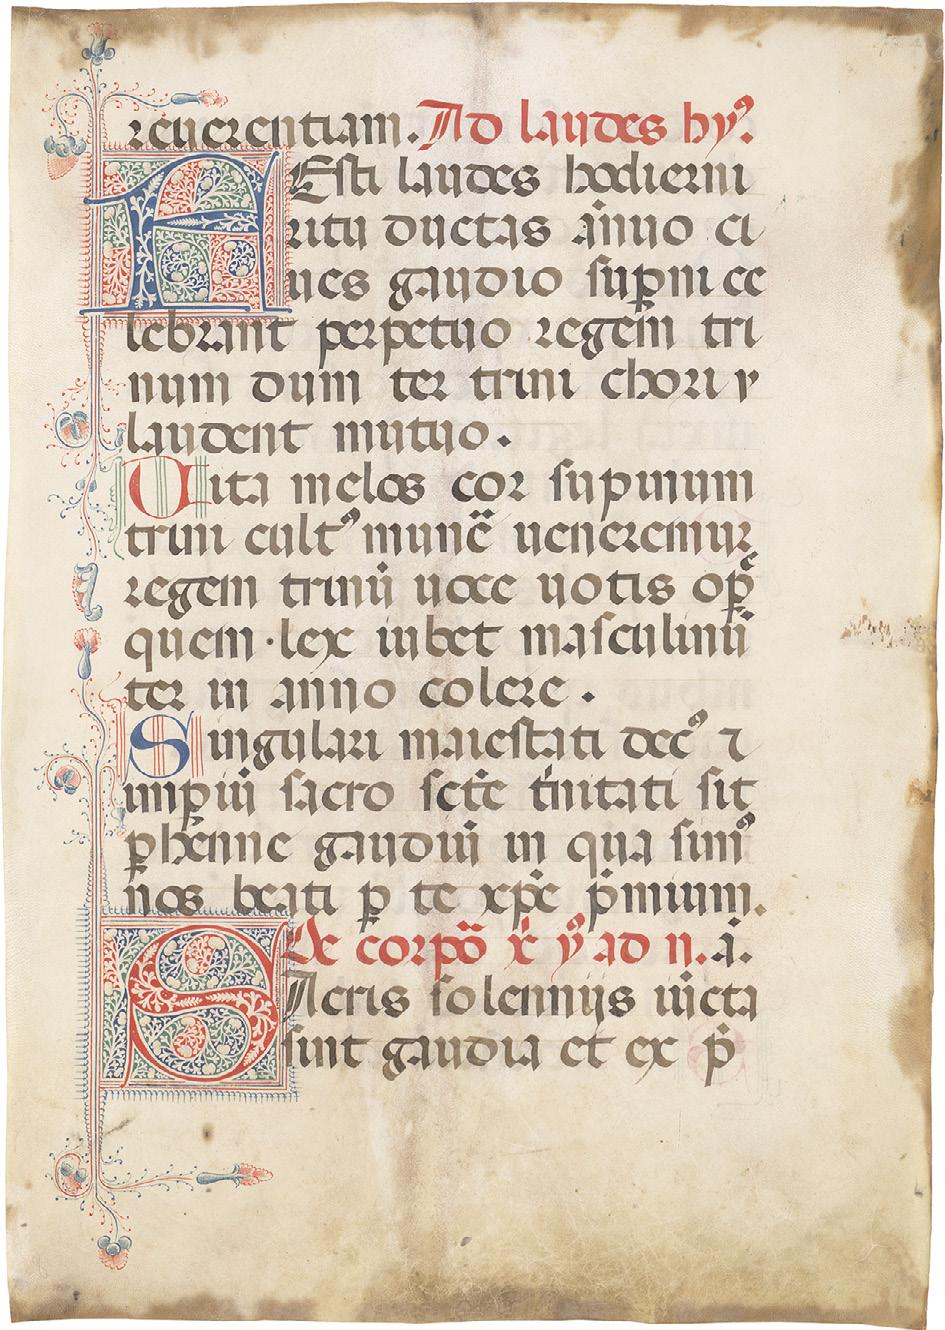 reuerentiam. Ad laudes hyꝰ.
FEsti laudes hodierni
ritu ductas annuo ci
ues gaudio sup̄ni ce
lebrant perpetuo regem tri
num dum ter trini chori y
laudent mutuo.
Uita melos cor supinum
trini cultꝰ munē ueneremur
regem trinū uoce uotis op̄e
quem·lex iubet masculinū
ter in anno colere.
Singulari maiestati decꝰ ⁊
imp̱iū sacro sct̄e t̄nitati sit
ꝑhenne gaudiū in qua simꝰ
nos beati ꝑ te xp̄e p̄mium.
De corpō x̄ yꝰ ad n. ā.
SAcris solenniis iūcta
sint gaudia et ex p̄